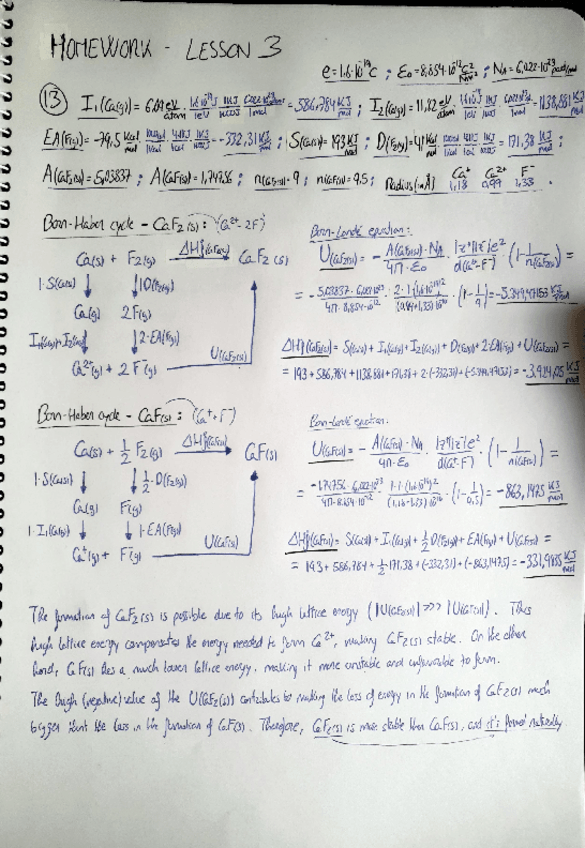 HOMEWORK - LESSON 3
e = 1,6·10⁻¹⁹C ; ε₀ = 8,854·10⁻¹² C²/Nm² ; NA = 6,022·10²³ part/mol
13 I₁(Ca(g)) = eV/atom · 1,6·10⁻¹⁹J/1eV · 1KJ/1000J · 6,022·10²³atom/1mol = 586,784 KJ/mol ; I₂(Ca(g)) = 11,82 eV/atom · 1,6·10⁻¹⁹J/1eV · 1KJ/1000J · 6,022·10²³/1mol = 1138,881 KJ/mol
EA(F(g)) = -79,5 Kcal/mol = -332,31 KJ/mol ; S(Ca(s)) = 193 KJ/mol ; D(F₂(g)) = 41 Kcal/mol = 171,38 KJ/mol ;
A(CaF₂(s)) = 5,03837 ; A(CaF(s)) = 1,74756 ; n(CaF₂(s)) = 9 ; n(CaF(s)) = 9,5 ; Radius (in Å) Ca⁺ 1,18 Ca²⁺ 0,99 F⁻ 1,33 .
Born-Haber cycle - CaF₂(s) : (Ca²⁺ - 2F⁻)
Ca(s) + F₂(g) ΔHf(CaF₂(s)) CaF₂(s)
1·S(Ca(s)) 1D(F₂(g))
Ca(g) 2F(g)
I₁(Ca(g)) + I₂(Ca(g)) 2·EA(F(g))
Ca²⁺(g) + 2F⁻(g) U(CaF₂(s))
Born-Landé equation:
U(CaF₂(s)) = - A(CaF₂(s))·NA / 4π·ε₀ · |z⁺||z⁻|e² / d(Ca²⁺-F⁻) · (1 - 1/n(CaF₂(s))) =
= -5,03837·6,022·10²³ / 4π·8,854·10⁻¹² · 2·1·(1,6·10⁻¹⁹)² / (0,99+1,33)·10⁻¹⁰ · (1 - 1/9) = KJ/mol
ΔHf(CaF₂(s)) = S(Ca(s)) + I₁(Ca(g)) + I₂(Ca(g)) + D(F₂(g)) + 2·EA(F(g)) + U(CaF₂(s)) =
= 193 + 586,784 + 1138,881 + 171,38 + 2·(-332,31) + = KJ/mol
Born-Haber cycle - CaF(s) : (Ca⁺-F⁻)
Ca(s) + ½F₂(g) ΔHf(CaF(s)) CaF(s)
1·S(Ca(s)) ½·D(F₂(g))
Ca(g) F(g)
1·I₁(Ca(g)) 1·EA(F(g))
Ca⁺(g) + F⁻(g) U(CaF(s))
Born-Landé equation:
U(CaF(s)) = - A(CaF(s))·NA / 4π·ε₀ · |z⁺||z⁻|e² / d(Ca⁺-F⁻) · (1 - 1/n(CaF(s))) =
= -1,74756·6,022·10²³ / 4π·8,854·10⁻¹² · 1·1·(1,6·10⁻¹⁹)² / (1,18+1,33)·10⁻¹⁰ · (1 - 1/9,5) = -863,1475 KJ/mol
ΔHf(CaF(s)) = S(Ca(s)) + I₁(Ca(g)) + ½D(F₂(g)) + EA(F(g)) + U(CaF(s)) =
= 193 + 586,784 + ½·171,38 + (-332,31) + (-863,1475) = KJ/mol
The formation of CaF₂(s) is possible due to its high lattice energy (|U(CaF₂(s))| >>> |U(CaF(s))|). This
high lattice energy compensates the energy needed to form Ca²⁺, making CaF₂(s) stable. On the other
hand, CaF(s) has a much lower lattice energy, making it more unstable and unfavorable to form.
The high (negative) value of the U(CaF₂(s)) contributes to making the loss of energy in the formation of CaF₂(s) much
bigger than the loss in the formation of CaF(s). Therefore, CaF₂(s) is more stable than CaF(s), and it's formed naturally.